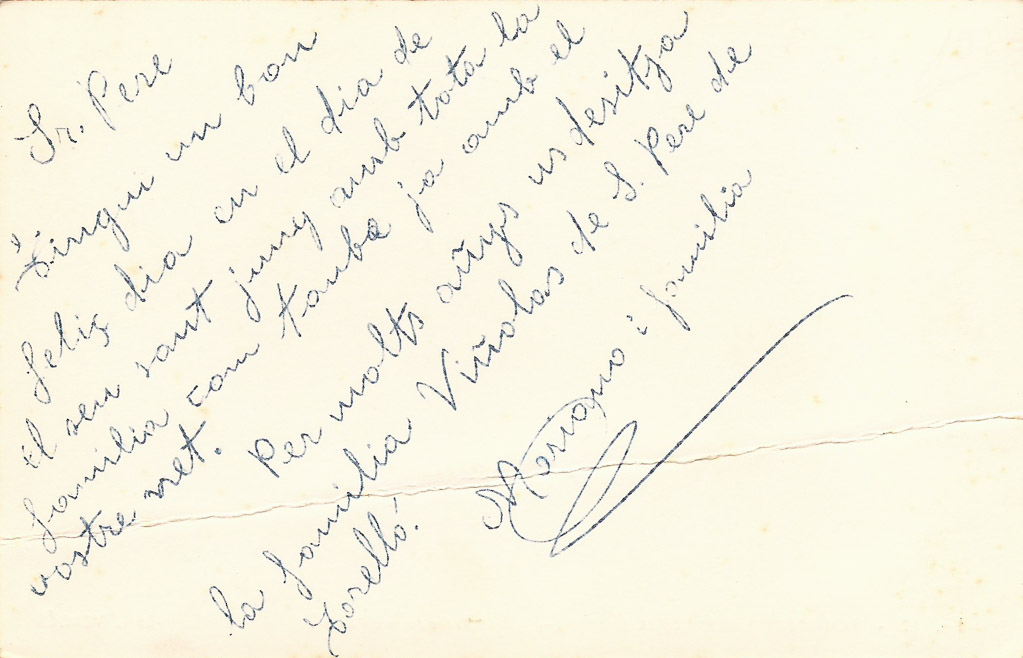 Sr. Pere
Tingui un bon
feliç dia en el dia de
el seu sant juny amb tota la
familia com tambe ja amb el
vostre net.
Per molts añys us desitja
la familia Viñolas de S. Pere de
Torelló.
Mariano i familia